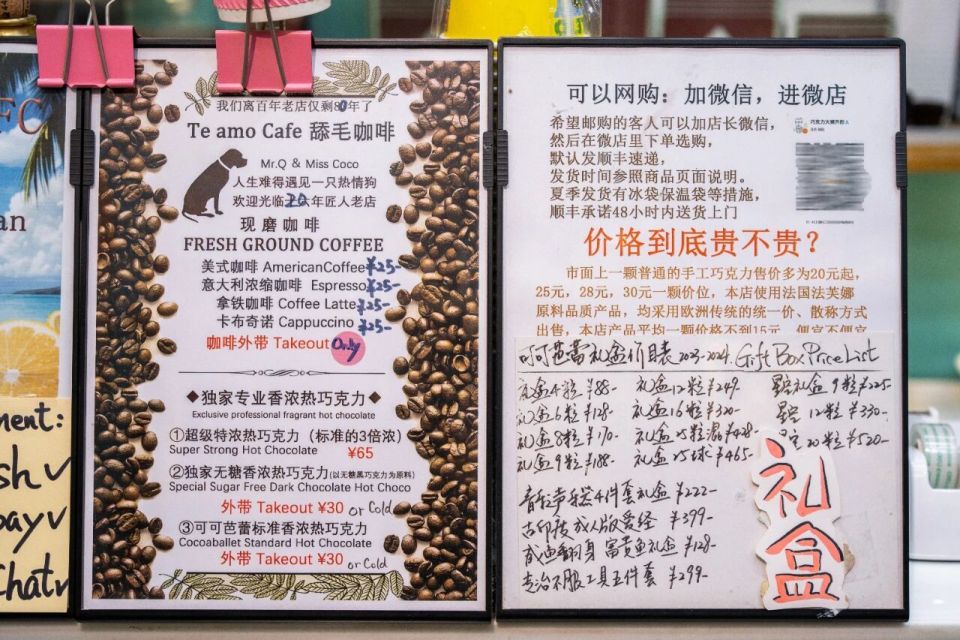 我们离百年老店仅剩80年了
Te amo Cafe 舔毛咖啡
Mr.Q & Miss Coco
人生难得遇见一只热情狗
欢迎光临20年匠人老店
现磨咖啡
FRESH GROUND COFFEE
美式咖啡 AmericanCoffee ¥25-
意大利浓缩咖啡 Espresso ¥25-
拿铁咖啡 Coffee Latte ¥25-
卡布奇诺 Cappuccino ¥25-
咖啡外带 Takeout Only
◆独家专业香浓热巧克力◆
Exclusive professional fragrant hot chocolate
①超级特浓热巧克力（标准的3倍浓）
Super Strong Hot Chocolate ¥65
②独家无糖香浓热巧克力(以无糖黑巧克力为原料)
Special Sugar Free Dark Chocolate Hot Choco
外带 Takeout ¥30 or Cold
③可可芭蕾标准香浓热巧克力
Cocoaballet Standard Hot Chocolate
外带 Takeout ¥30 or Cold
可以网购：加微信，进微店
希望邮购的客人可以加店长微信，
然后在微店里下单选购，
默认发顺丰速递，
发货时间参照商品页面说明。
夏季发货有冰袋保温袋等措施，
顺丰承诺48小时内送货上门
价格到底贵不贵？
市面上一颗普通的手工巧克力售价多为20元起，
25元，28元，30元一颗价位，本店使用法国法芙娜
原料品质产品，均采用欧洲传统的统一价、散称方式
出售，本店产品平均一颗价格不到15元，便宜不便宜
可可芭蕾礼盒价目表2023-2024. Gift Box Price List
礼盒4粒 ¥88- 礼盒12粒 ¥249 星空礼盒 9粒 ¥225-
礼盒6粒 ¥128- 礼盒16粒 ¥320- 星空 12粒 ¥330-
礼盒8粒 ¥170- 礼盒25粒混 ¥428- 星空 20粒 ¥520-
礼盒9粒 ¥188- 礼盒25球 ¥465-
4件套礼盒 ¥222-
成人版爱经 ¥399-
咸鱼翻身 富贵鱼礼盒 ¥128-
专治不服工具五件套 ¥299-
礼盒